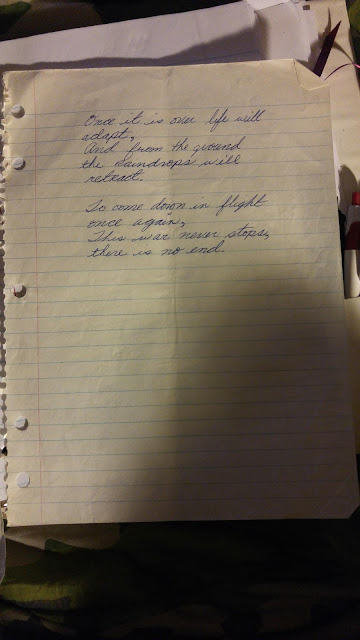 Once it is over life will
adapt,
And from the ground
the raindrops will
retract.
To come down in flight
once again,
This war never stops,
there is no end.